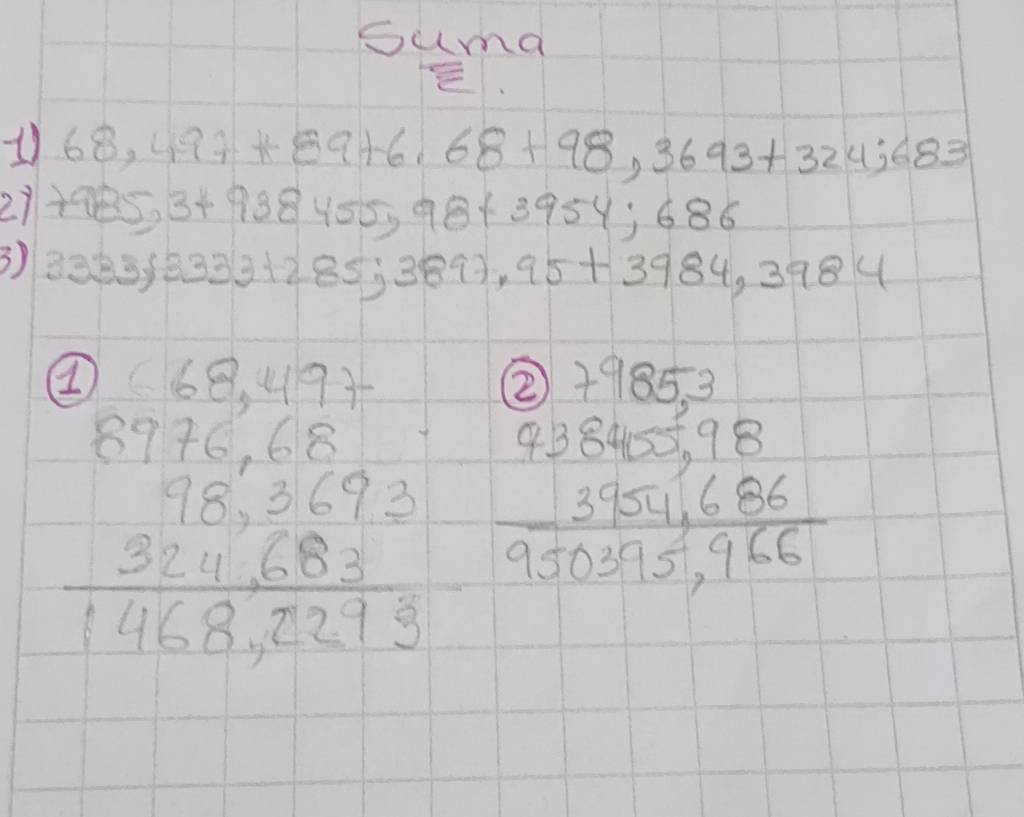 Suma
1) 68,497 + 8976,68 + 98,3693 + 324;683
2) 7985,3 + 938455,98 + 3954;686
3) 3333;3333 + 285;3897,95 + 3984,3984
① 68,497
8976,68
98,3693
324,683
1468,2293
② 7985,3
938455,98
3954,686
950395,966